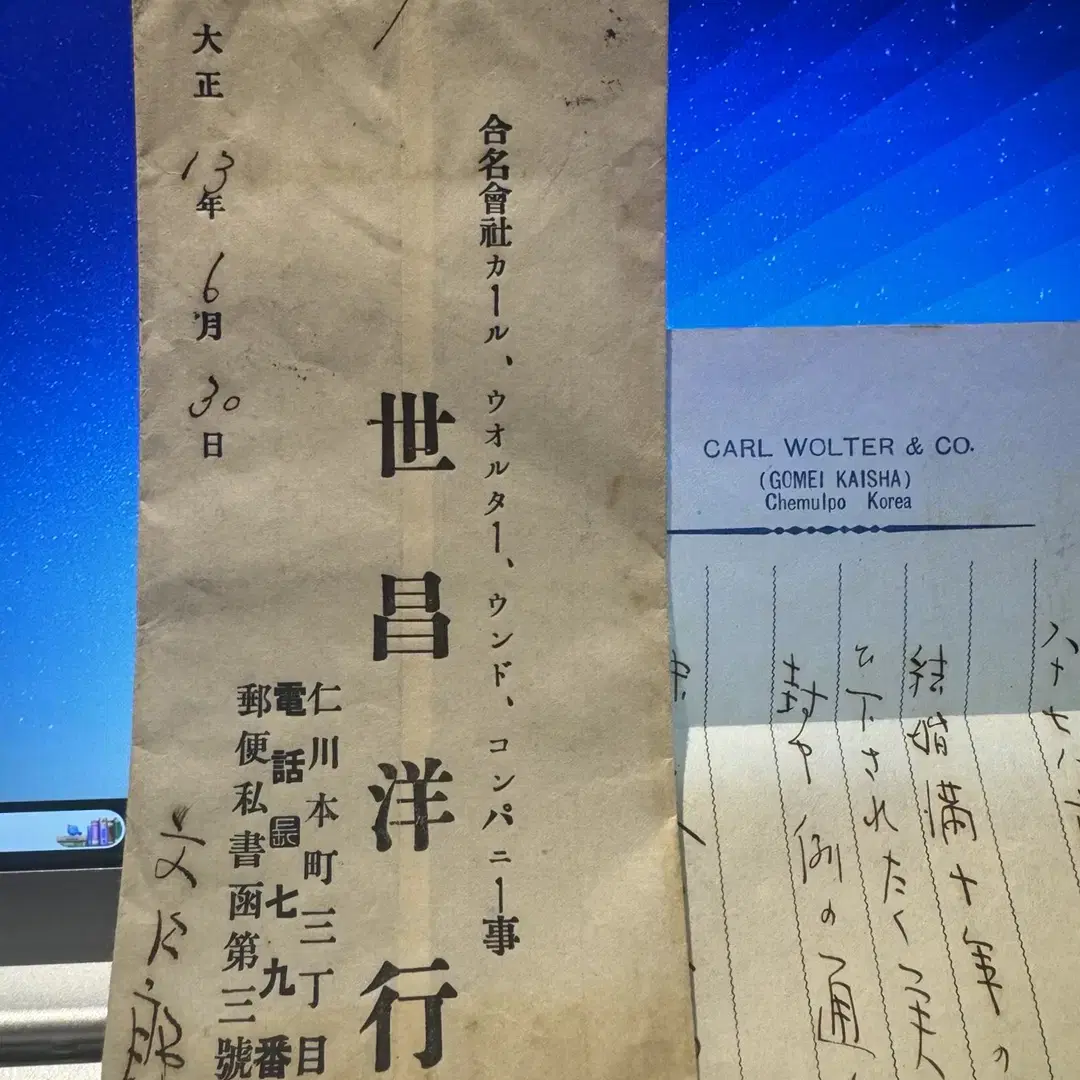 合名會社カール、ウオルター、ウンド、コンパニー事
世昌洋行
仁川本町三丁目
電話長七九番
郵便私書函第三號
大正13年6月30日
CARL WOLTER & CO.
(GOMEI KAISHA)
Chemulpo Korea
結婚満十年の
下されたく
封や例の通